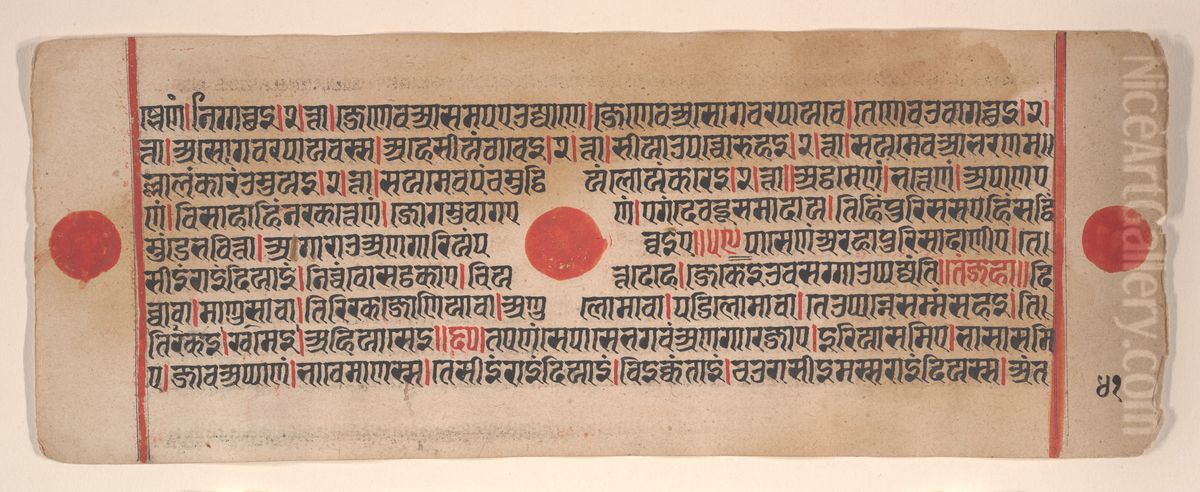 ज्झेणं।निग्गच्छइ।२त्ता।जेणेव आसमपए उज्जाणे।जेणेव असोगवरपायवे।तेणेव उवागच्छइ।२
त्ता।असोगवरपायवस्स।अहे सीयं ठावेइ।२त्ता।सीयाउ पच्चोरुहइ।२त्ता।सयमेव आभरणम
ल्लालंकारं उमुयइ।२त्ता।सयमेव पंचमुट्ठि यं लोयं करेइ।२त्ता॥अट्ठमेणं।भत्तेणं।अपाणए
णं।विसाहाहिं नरकत्तेणं।जोगमुवागए णं।एगं देवदूसमादाय।तिहिं पुरिससएहिं सद्धिं
मुंडे भवित्ता।अगाराउ अणगारियं प व्वइए॥ पासे णं अरहा पुरिसादाणीए।ते
सीइं राइंदियाइं।निच्चं वोसट्ठकाए।चिय त्तदेहे।जे केइ उवसग्गा उप्पज्जंति॥तंजहा॥दि
व्वा वा।माणुसा वा।तिरिरकजोणिया वा।अणु लोमा वा।पडिलोमा वा।ते उप्पन्ने सम्मं सहइ।ति
तिरकइ।खमइ।अहियासेइ॥ तए णं से पासे भगवं अणगारे जाए।इरियासमिए।भासासमि
ए।जाव अप्पाणं।भावेमाणस्स।तेसीइं राइंदियाइं।विइक्कंताइं।चउरासीइमस्स राइंदियस्स।अंत
४१
NiceArtGallery.com